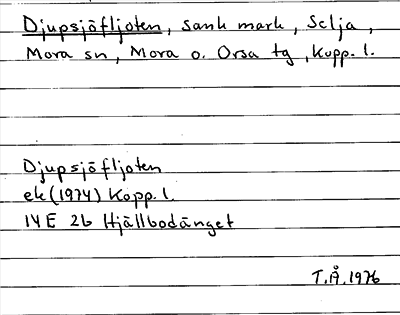 Djupsjöfljoten, sank mark, Selja,
Mora sn, Mora o. Orsa tg, Kopp. l.
Djupsjöfljoten
ek (1974) Kopp. l.
14 E 2b Hjällbodänget
T.Å. 1976